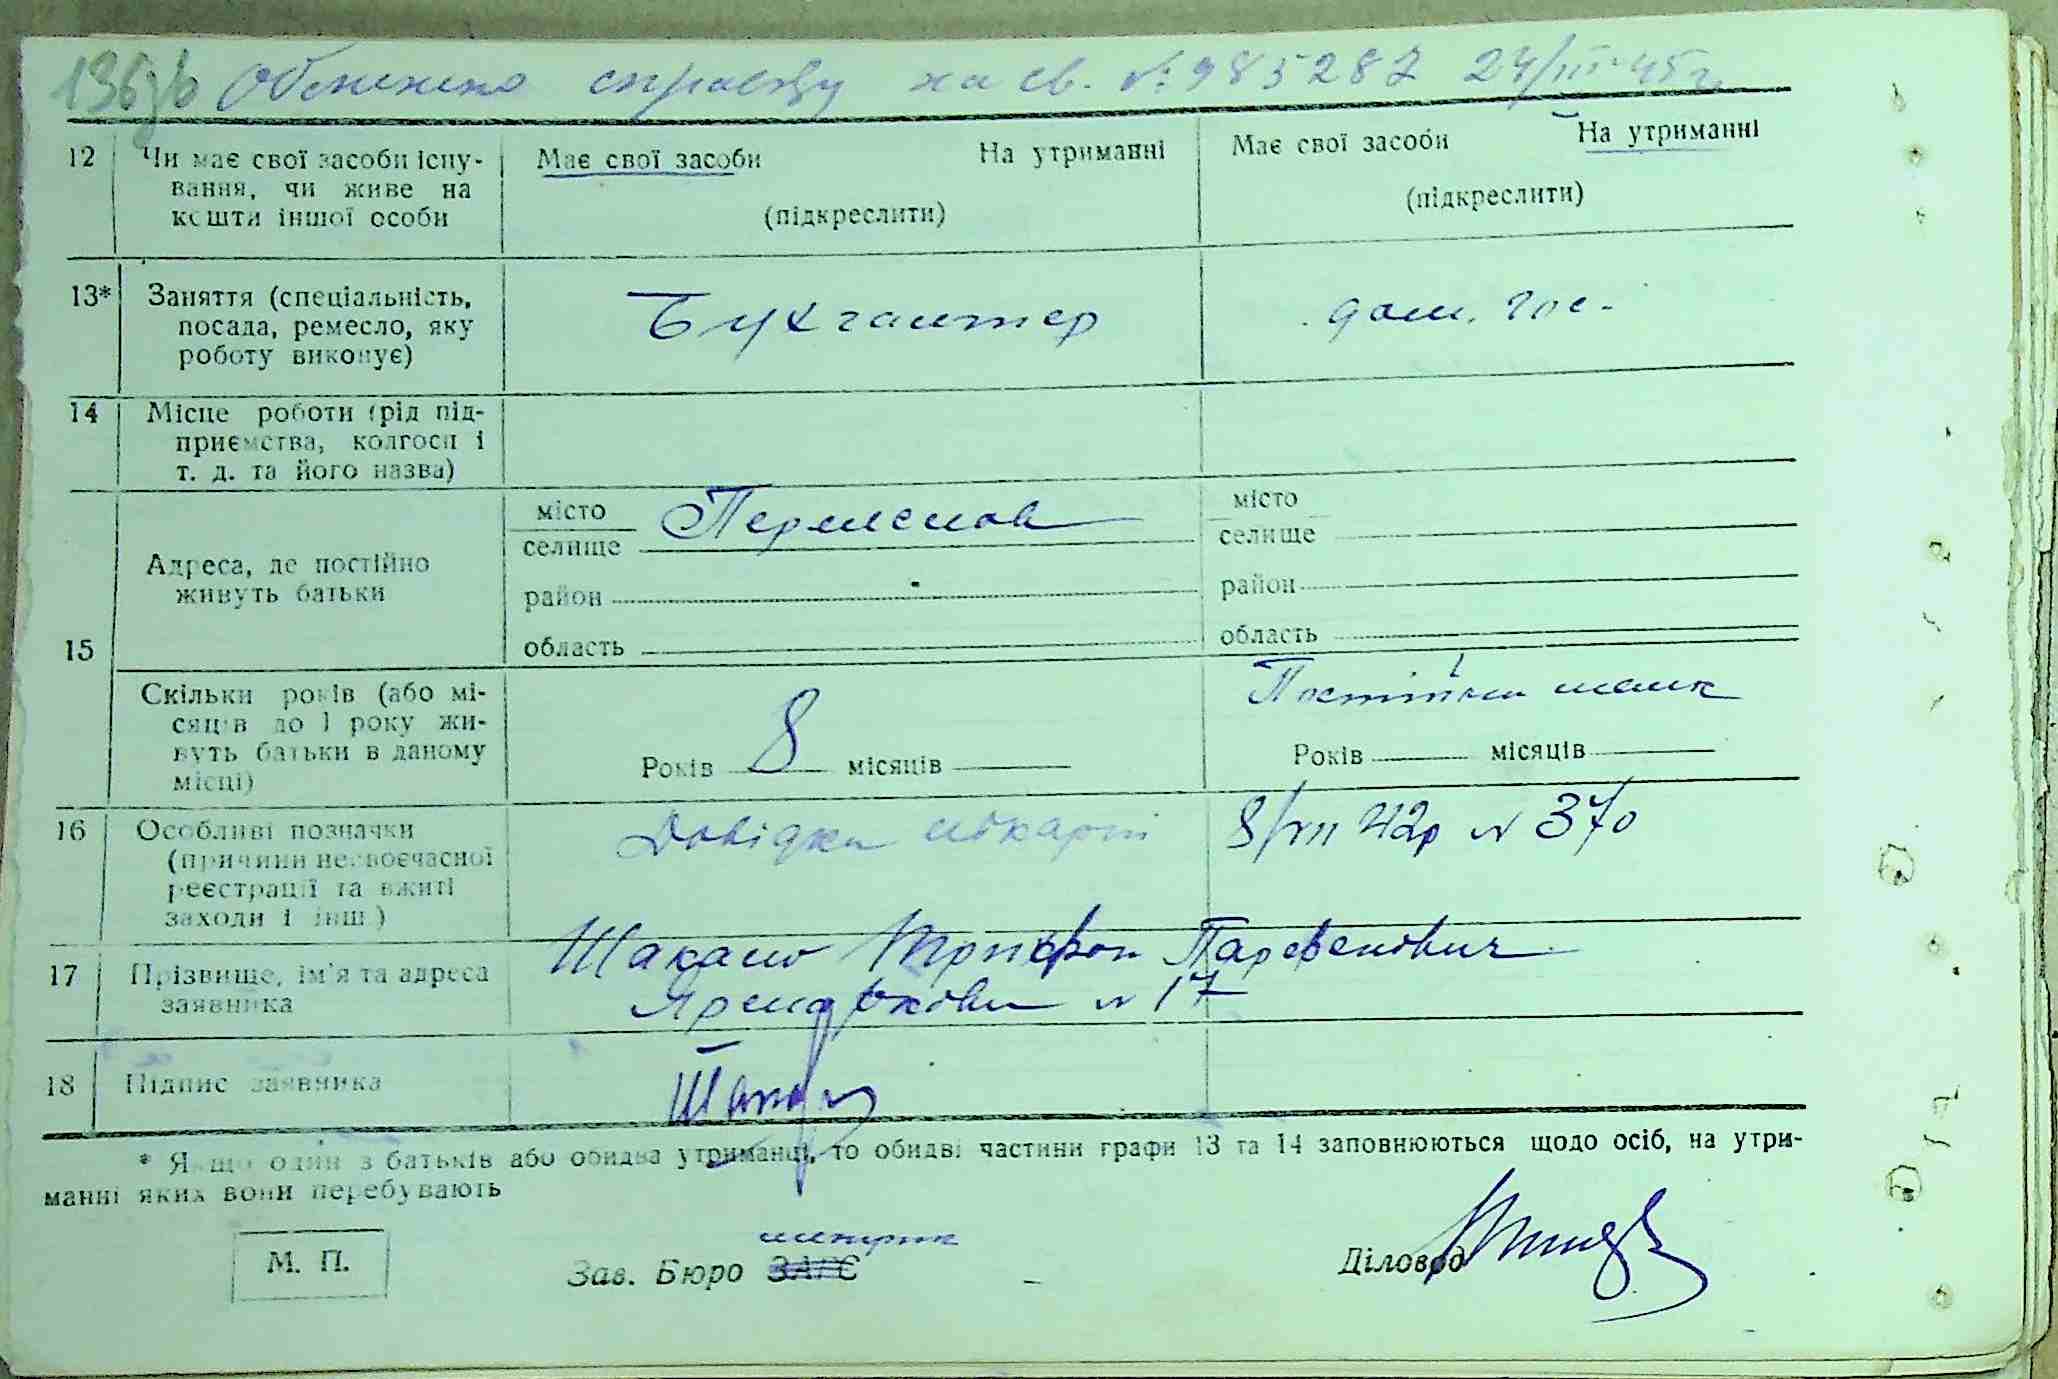 справку на св. № 985287 24/III-45 г.
12 Чи має свої засоби існу-
вання, чи живе на
кошти іншої особи
Має свої засоби На утриманні
(підкреслити)
Має свої засоби На утриманні
(підкреслити)
13* Заняття (спеціальність,
посада, ремесло, яку
роботу виконує)
Бухгалтер
дом. гос.
14 Місце роботи (рід під-
приємства, колгосп і
т. д. та його назва)
15
Адреса, де постійно
живуть батьки
місто
селище
район
область
місто
селище
район
область
Скільки років (або мі-
сяців до 1 року жи-
вуть батьки в даному
місці)
Років 8 місяців
Років місяців
16 Особливі позначки
(причини несвоєчасної
реєстрації та вжиті
заходи і інш.)
Довідка лікарні 8/VII 42р № 370
17 Прізвище, ім'я та адреса
заявника
Трифон Парфенович
№ 17
18 Підпис заявника
* Якщо один з батьків або обидва утриманці, то обидві частини графи 13 та 14 заповнюються щодо осіб, на утри-
манні яких вони перебувають
М. П.
Зав. Бюро ЗАГС
Діловод